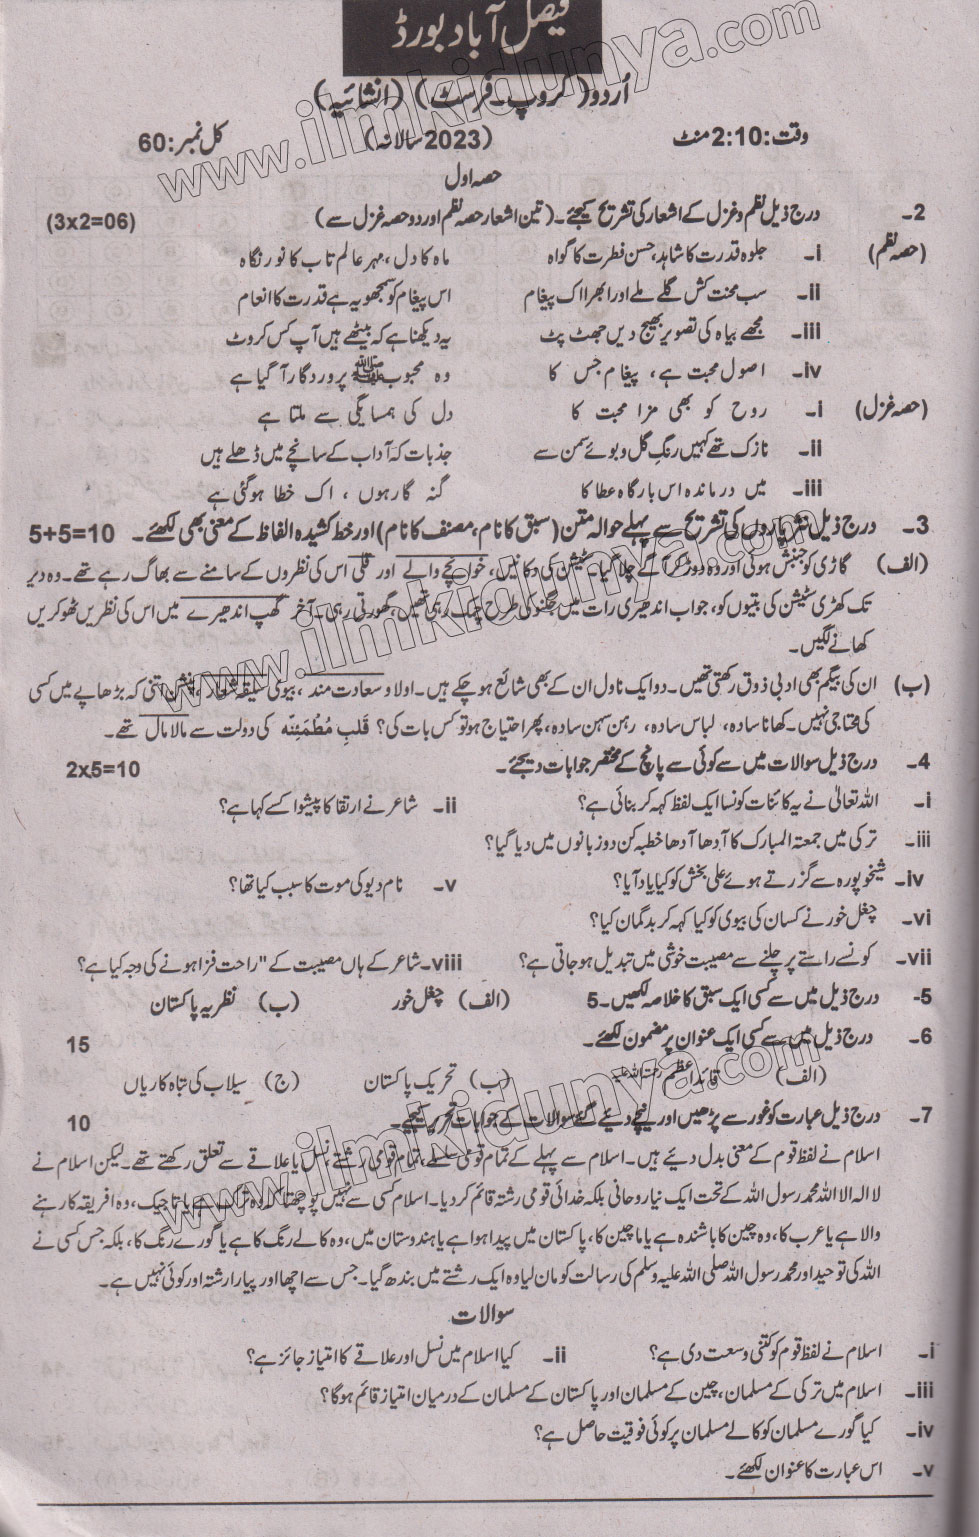 فیصل آباد بورڈ
اُردو (گروپ۔فرسٹ) (انشائیہ)
وقت:2:10 منٹ (2023 سالانہ) کل نمبر:60
حصہ اول
2۔ درج ذیل نظم و غزل کے اشعار کی تشریح کیجئے۔ (تین اشعار حصہ نظم اور دو حصہ غزل سے) (3x2=06)
(حصہ نظم) i۔ جلوہ قدرت کا شاہد، حسن فطرت کا گواہ ماہ کا دل، مہر عالم تاب کا نور نگاہ
ii۔ سب محنت کش گلے ملے اور ابھرا اک پیغام اس پیغام کو سمجھو یہ ہے قدرت کا انعام
iii۔ مجھے بیاہ کی تصویر بھیج دیں جھٹ پٹ یہ دیکھنا ہے کہ بیٹھے ہیں آپ کس کروٹ
iv۔ اصول محبت ہے، پیغام جس کا وہ محبوبﷺ پروردگار آ گیا ہے
(حصہ غزل) i۔ روح کو بھی مزا محبت کا دل کی ہمسائیگی سے ملتا ہے
ii۔ نازک تھے کہیں رنگِ گل و بوئے سمن سے جذبات کہ آداب کے سانچے میں ڈھلے ہیں
iii۔ میں درماندہ اس بارگاہ عطا کا گنہ گار ہوں، اک خطا ہو گئی ہے
3۔ درج ذیل نثر پاروں کی تشریح سے پہلے حوالہ متن (سبق کا نام، مصنف کا نام) اور خط کشیدہ الفاظ کے معنی بھی لکھئے۔ 5+5=10
(الف) گاڑی کو جنبش ہوئی اور وہ دوڑ کر آگے چلا گیا۔ سٹیشن کی دکانیں، خوانچے والے اور قلی اس کی نظروں کے سامنے سے بھاگ رہے تھے۔ وہ دیر
تک کھڑی سٹیشن کی بتیوں کو، جو اب اندھیری رات میں جگنو کی طرح چمک رہی تھیں، گھورتی رہی۔ آخر گھپ اندھیرے میں اس کی نظریں ٹھوکریں
کھانے لگیں۔
(ب) ان کی بیگم بھی ادبی ذوق رکھتی تھیں۔ دو ایک ناول ان کے بھی شائع ہو چکے ہیں۔ اولاد سعادت مند، بیوی سلیقہ شعار، پنشن اتنی کہ بڑھاپے میں کسی
کی محتاجی نہیں۔ کھانا سادہ، لباس سادہ، رہن سہن سادہ، پھر احتیاج ہو تو کس بات کی؟ قلبِ مُطمَئِنّہ کی دولت سے مالا مال تھے۔
4۔ درج ذیل سوالات میں سے کوئی سے پانچ کے مختصر جوابات دیجئے۔ 2x5=10
i۔ اللہ تعالیٰ نے یہ کائنات کونسا ایک لفظ کہہ کر بنائی ہے؟ ii۔ شاعر نے ارتقا کا پیشوا کسے کہا ہے؟
iii۔ ترکی میں جمعتہ المبارک کا آدھا آدھا خطبہ کن دو زبانوں میں دیا گیا؟
iv۔ شیخوپورہ سے گزرتے ہوئے علی بخش کو کیا یاد آیا؟ v۔ نام دیو کی موت کا سبب کیا تھا؟
vi۔ چغل خور نے کسان کی بیوی کو کیا کہہ کر بدگمان کیا؟
vii۔ کونسے راستے پر چلنے سے مصیبت خوشی میں تبدیل ہو جاتی ہے؟ viii۔ شاعر کے ہاں مصیبت کے "راحت فزا ہونے کی وجہ کیا ہے؟
5۔ درج ذیل میں سے کسی ایک سبق کا خلاصہ لکھیں۔ 5 (الف) چغل خور (ب) نظریہ پاکستان
6۔ درج ذیل میں سے کسی ایک عنوان پر مضمون لکھئے۔ 15
(الف) قائداعظم رحمۃ اللہ علیہ (ب) تحریک پاکستان (ج) سیلاب کی تباہ کاریاں
7۔ درج ذیل عبارت کو غور سے پڑھیں اور نیچے دیئے گئے سوالات کے جوابات تحریر کیجیے۔ 10
اسلام نے لفظ قوم کے معنی بدل دیئے ہیں۔ اسلام سے پہلے کے تمام قومی سلسلے، تمام قومی رشتے، نسل یا علاقے سے تعلق رکھتے تھے۔ لیکن اسلام نے
لا الہ الا اللہ محمد رسول اللہ کے تحت ایک نیا روحانی بلکہ خدائی قومی رشتہ قائم کر دیا۔ اسلام کسی سے نہیں پوچھتا کہ وہ ترک ہے یا تاجیک، وہ افریقہ کا رہنے
والا ہے یا عرب کا، وہ چین کا باشندہ ہے یا ماچین کا، پاکستان میں پیدا ہوا ہے یا ہندوستان میں، وہ کالے رنگ کا ہے یا گورے رنگ کا، بلکہ جس کسی نے
اللہ کی توحید اور محمد رسول اللہ صلی اللہ علیہ وسلم کی رسالت کو مان لیا وہ ایک رشتے میں بندھ گیا۔ جس سے اچھا اور پیارا رشتہ اور کوئی نہیں ہے۔
سوالات
i۔ اسلام نے لفظ قوم کو کتنی وسعت دی ہے؟ ii۔ کیا اسلام میں نسل اور علاقے کا امتیاز جائز ہے؟
iii۔ اسلام میں ترکی کے مسلمان، چین کے مسلمان اور پاکستان کے مسلمان کے درمیان امتیاز قائم ہوگا؟
iv۔ کیا گورے مسلمان کو کالے مسلمان پر کوئی فوقیت حاصل ہے؟
v۔ اس عبارت کا عنوان لکھئے۔
www.ilmkidunya.com
www.ilmkidunya.com
www.ilmkidunya.com